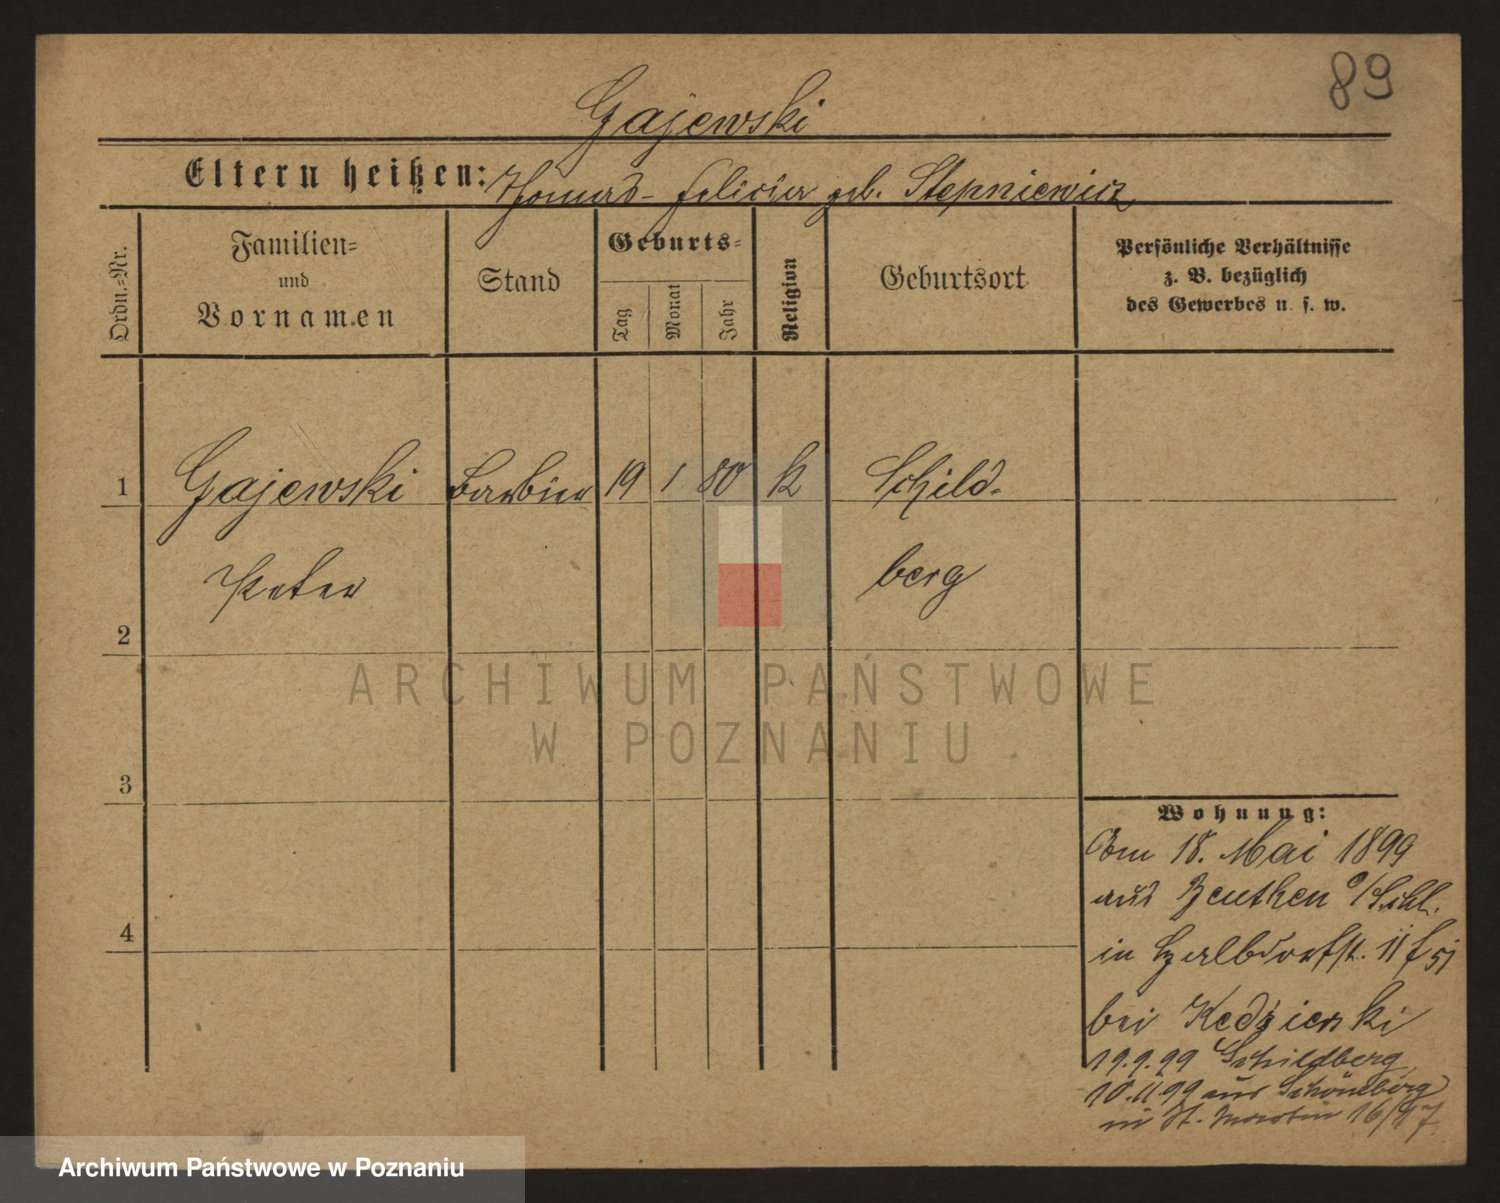 89
Gajewski
Eltern heißen: Thomas - Felicia geb. Stepniewicz
Ordn.-Nr.
Familien- und Vornamen
Stand
Geburts-
Tag
Monat
Jahr
Religion
Geburtsort
Persönliche Verhältnisse
z. B. bezüglich
des Gewerbes u. s. w.
1 Gajewski Barbier 19 1 80 k Schild-
Peter berg
2
3
4
Wohnung:
Am 18. Mai 1899
aus Beuthen O/Schl.
in Halbdorfstr.
bei Kedzierski
19.9.99 Schildberg
10.11.99 aus Schöneberg
in St. Martin 16/17
ARCHIWUM PAŃSTWOWE
W POZNANIU
Archiwum Państwowe w Poznaniu